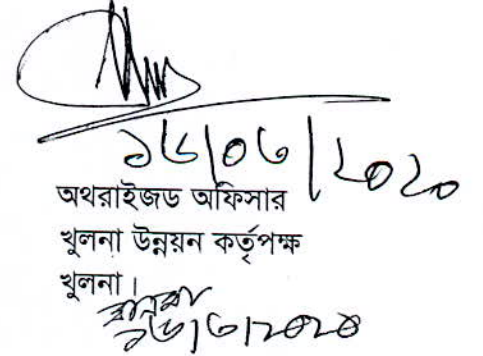 ১৬/০৬/২০২০
অথরাইজড অফিসার
খুলনা উন্নয়ন কর্তৃপক্ষ
খুলনা।
১৬/৬/২০২০